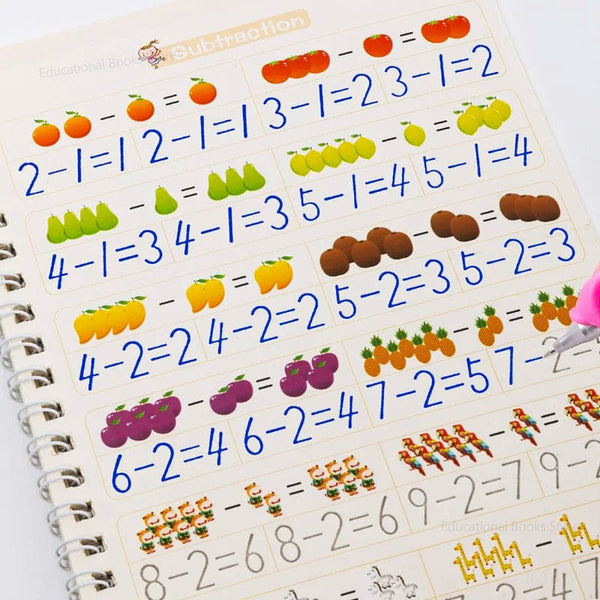 Educational Books
Subtraction
- =
- =
2-1=1 2-1=1
3-1=2 3-1=2
- =
- =
4-1=3 4-1=3
5-1=4 5-1=4
- =
- =
4-2=2 4-2=2
5-2=3 5-2=3
- =
- =
6-2=4 6-2=4
7-2=5 7-2
- =
- =
8-2=6 8-2=6
9-2=7 9-2
Educational Books
-